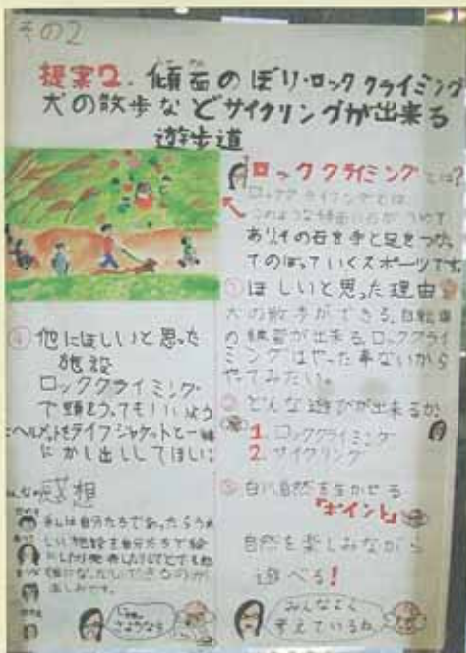 その2
提案2. 傾面のぼり・ロッククライミング
犬の散歩などサイクリングが出来る
遊歩道
ロッククライミングとは?
ロッククライミングとは、
このような
ありその石を手と足をつかっ
てのぼっていくスポーツです
① ほしいと思った理由
犬の散歩ができる。自転車
の練習が出来る。ロッククライ
ミングはやった事ないから
やってみたい。
② どんな遊びが出来るか
1. ロッククライミング
2. サイクリング
③ 自然を生かせる
『ポイント』
自然を楽しみながら
遊べる!
みんなよく
考えているね
④ 他にほしいと思った
施設
ロッククライミング
で頭をうってもいいよう
にヘルメットをライフジャケットと一緒
にかし出ししてほしい
みんなの感想
私は自分たちであったらうれ
しい施設を自分たちで絵
にしたり発表したりしてとても
楽しみです。
さようなら